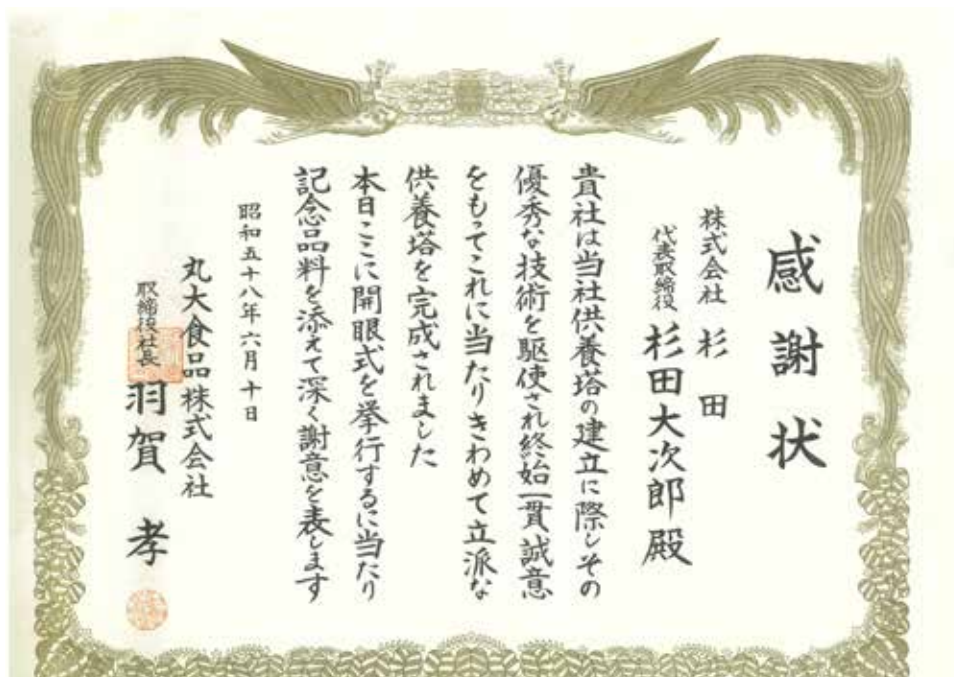 感謝状
株式会社 杉田
代表取締役 杉田大次郎殿
貴社は当社供養塔の建立に際しその
優秀な技術を駆使され終始一貫誠意
をもってこれに当たりきわめて立派な
供養塔を完成されました
本日ここに開眼式を挙行するに当たり
記念品料を添えて深く謝意を表します
昭和五十八年六月十日
丸大食品株式会社
取締役社長 羽賀 孝